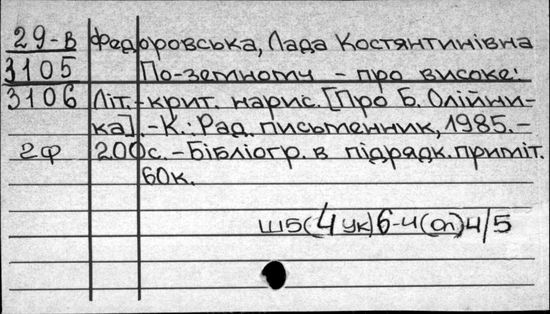 29-в Федоровська, Лада Костянтинівна
3105 По-земному - про високе:
3106 Літ.-крит. нарис. [Про Б. Олійни-
ка]. - К.: Рад. письменник, 1985. -
2ф 200с. - Бібліогр. в підрядк. приміт.
60к.
Ш5(4ук)6-4(Ол)4/5